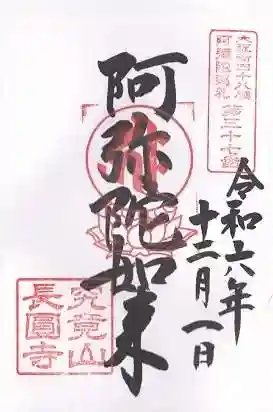 大阪新四十八願
阿弥陀巡礼
第三十七番
令和六年
十二月一日
阿弥陀如来
究竟山
長圓寺